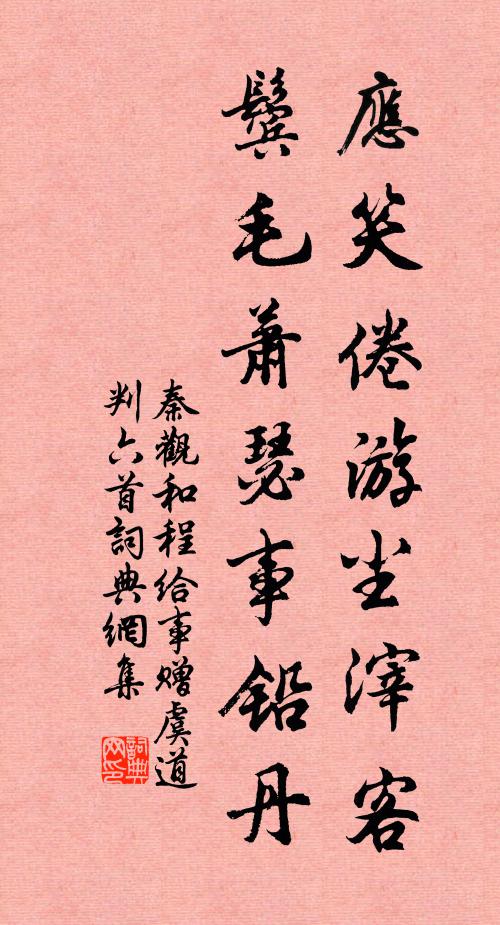 應笑倦游尘滓客
鬓毛蕭瑟事铅丹
秦觀和程给事赠虞道
判六首詞典網集
詞典网印